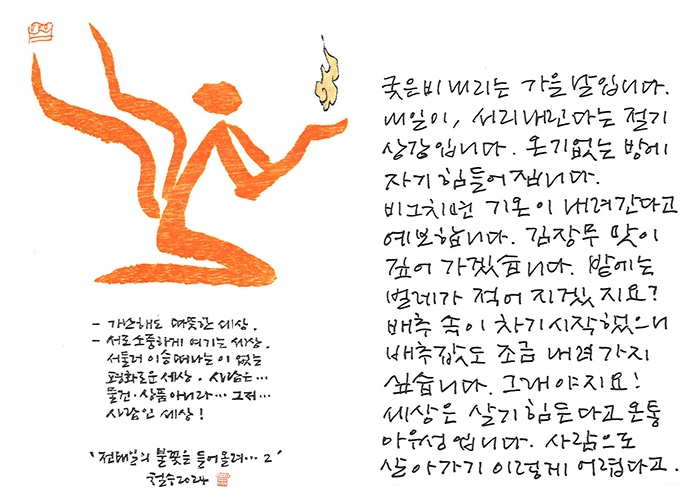 - 가난해도 따뜻한 세상.
- 서로 소중하게 여기는 세상.
서둘러 이승 떠나는 이 없는
평화로운 세상. 사람은…
물건·상품 아니라… 그저…
사람인 세상!
'전태일의 불꽃을 들어올려… 2'
철수 2024
궂은비 내리는 가을 날입니다.
내일이, 서리 내린다는 절기
상강입니다. 온기없는 방에
자기 힘들어집니다.
비그치면 기온이 내려간다고
예보합니다. 김장무 맛이
깊어 가겠습니다. 밭에는
벌레가 적어 지겠지요?
배추 속이 차기 시작했으니
배추값도 조금 내려가지
싶습니다. 그래야지요!
세상은 살기 힘든다고 온통
아우성입니다. 사람으로
살아가기 이렇게 어렵다고.